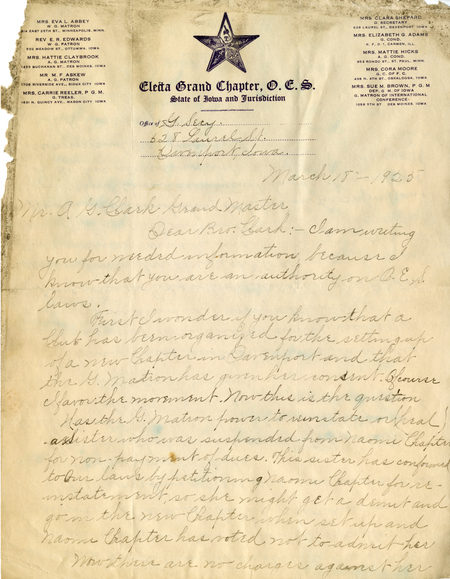 MRS. EVA L. ABBEY
W. G. MATRON
MINNEAPOLIS, MINN.
REV. E. R. EDWARDS
W. G. PATRON
OTTUMWA, IOWA
MRS. HATTIE CLAYBROOK
A. G. MATRON
DES MOINES, IOWA
MR. M. F. ASKEW
A. G. PATRON
SIOUX CITY, IOWA
MRS. CARRIE REELER, P. G. M.
G. TREAS.
MASON CITY, IOWA
MRS. CLARA SHEPARD
G. SECRETARY
DAVENPORT, IOWA
MRS. ELIZABETH G. ADAMS
G. COND.
MRS. MATTIE HICKS
A. G. COND.
ST. PAUL, MINN.
MRS. CORA MOORE
G. C. OF F. C.
OSKALOOSA, IOWA
MRS. SUE M. BROWN, P. G. M.
DEP. G. M. OF IOWA
G. MATRON OF INTERNATIONAL
CONFERENCE
DES MOINES, IOWA
Electa Grand Chapter, O. E. S.
State of Iowa and Jurisdiction
Office of G. Secy.
528 Laurel St.
Davenport, Iowa.
March 18 - 1925
Mr. A. G. Clark Grand Master
Dear Bro. Clark: - I am writing
you for needed information, because I
know that you are an authority on O. E. S.
laws.
First I wonder if you know that a
Club has been organized for the setting up
of a new Chapter in Davenport and that
the G. Matron has given her consent. Of course
I favor the movement. Now this is the question
Has the G. Matron power to reinstate or heal
a sister who was suspended from Naomi Chapter
for non-payment of dues. This sister has conformed
to our laws by petitioning Naomi Chapter for re-
instatement, so she might get a demit and
go in the new Chapter when set up and
Naomi Chapter has voted not to admit her
Now there are no charges against her